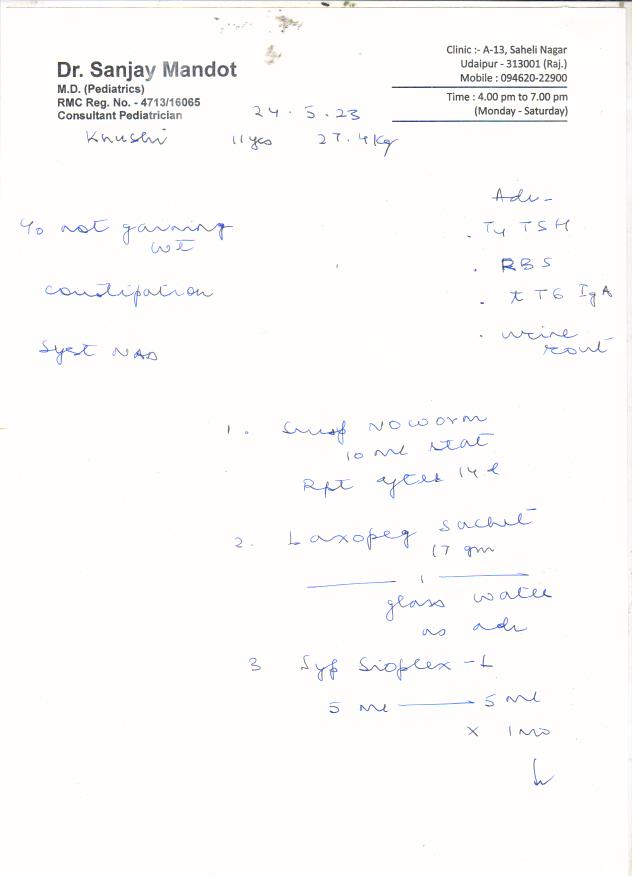 Dr. Sanjay Mandot
M.D. (Pediatrics)
RMC Reg. No. - 4713/16065
Consultant Pediatrician
Clinic :- A-13, Saheli Nagar
Udaipur - 313001 (Raj.)
Mobile : 094620-22900
Time : 4.00 pm to 7.00 pm
(Monday - Saturday)
24.5.23
Khushi 11 yrs 27.4 kg
not gaining
wt
constipation
Syst NAD
Adv -
. T4 TSH
. RBS
. tTG IgA
. urine
rout
1. Susp Noworm
10 ml stat
Rpt after 14 d
2. Laxopeg sachet
17 gm
1
glass water
as adv
3 Syp Sioplex-L
5 ml — 5 ml
x 1 mo